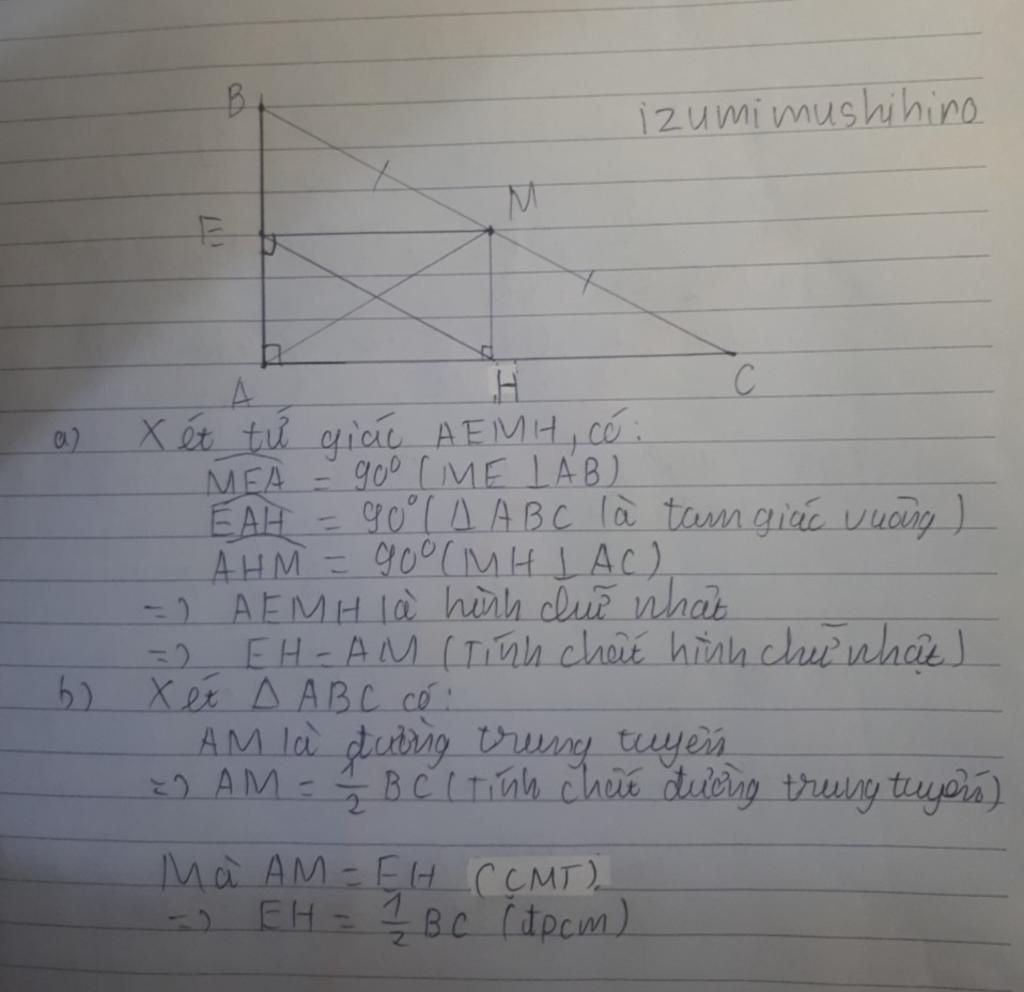 B
izumimushihiro
M
E
A
H
C
a) Xét tứ giác AEMH, có:
MEA = 90° (ME ⊥ AB)
EAH = 90° (Δ ABC là tam giác vuông)
AHM = 90° (MH ⊥ AC)
=> AEMH là hình chữ nhật
=> EH = AM (Tính chất hình chữ nhật)
b) Xét Δ ABC có:
AM là đường trung tuyến
=> AM = 1/2 BC (Tính chất đường trung tuyến)
Mà AM = EH (CMT).
=> EH = 1/2 BC (đpcm)